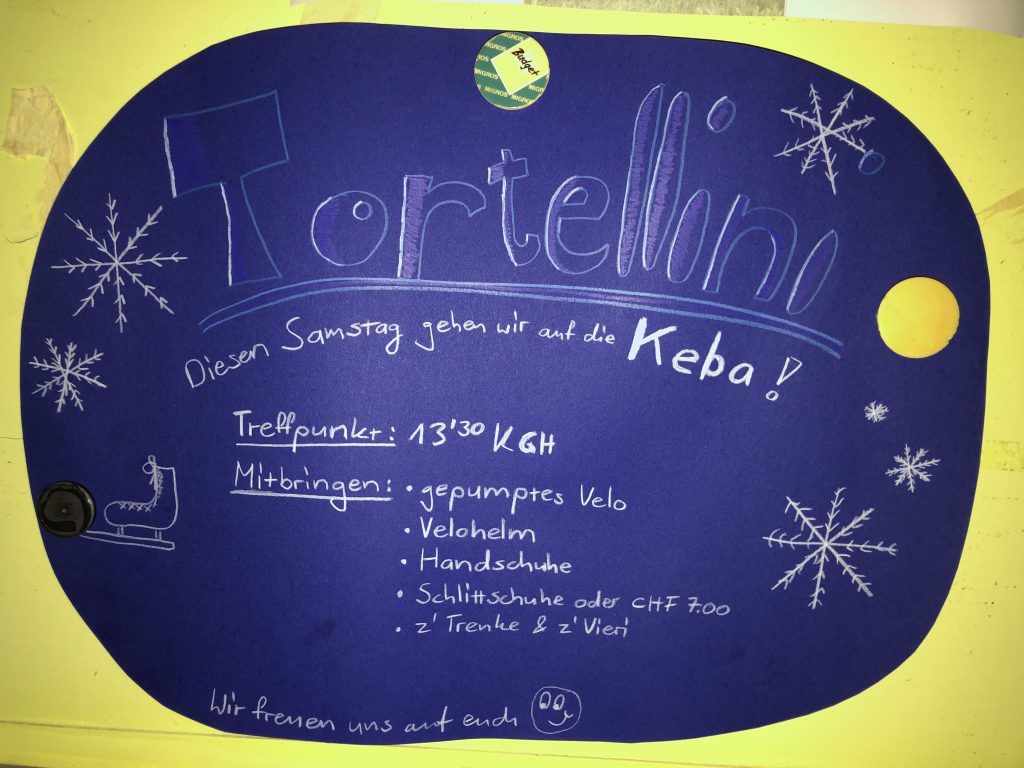 Budget
MIGROS MIGROS MIGROS MIGROS
Tortellini
Diesen Samstag gehen wir auf die Keba!
Treffpunkt: 13'30 KGH
Mitbringen: • gepumptes Velo
• Velohelm
• Handschuhe
• Schlittschuhe oder CHF 7.00
• z'Trenke & z'Vieri
Wir freuen uns auf euch